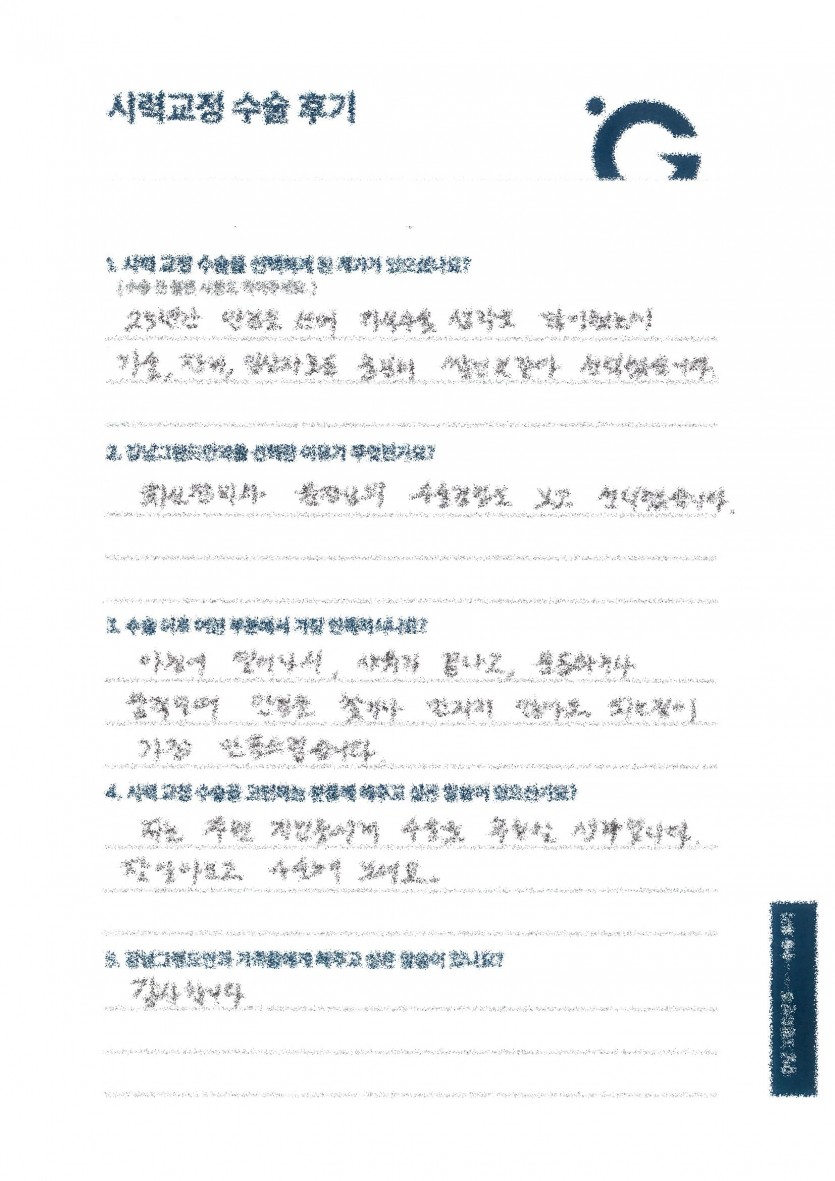 시력교정 수술 후기
1. 시력 교정 수술을 선택하게 된 계기가 있으셨나요?
(수술 전 불편 사항도 적어주세요.)
23년간 안경을 쓰며
기술, 장비, 임상자료들 선택했습니다.
2. 강남그랜드안과를 선택한 이유가 무엇인가요?
원장님의 수술경험도 보고 선택했습니다.
3. 수술 이후 어떤 부분에서 가장 만족하시나요?
아침에 일어나서, 샤워가 끝나고, 운동하거나
움직이며 안경을 찾거나 만지지 않아도 되는점이
가장 만족스럽습니다.
4. 시력 교정 수술을 고민하는 분들께 해주고 싶은 말씀이 있으신가요?
저는 주변 지인들에게 수술을 생각입니다.
잘 알아보고 수술해 보세요.
5. 강남그랜드안과 가족들에게 해주고 싶은 말씀이 있나요?
감사합니다